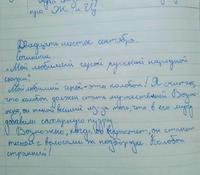 про "Ж и Ш"
Двадцать шестое сентября.
Сочинение
"Мой любимый герой русской народной
сказки"
Мой любимый герой - это колобок! Я считаю,
что колобок должен стать мужественней. Возмо
жно, он такой весёлый из-за того, что в его муку
добавили сахарную пудру.
Возможно, когда он вырастет, он станет
тыквой с волосами на подбородке. Колобок
страшный!